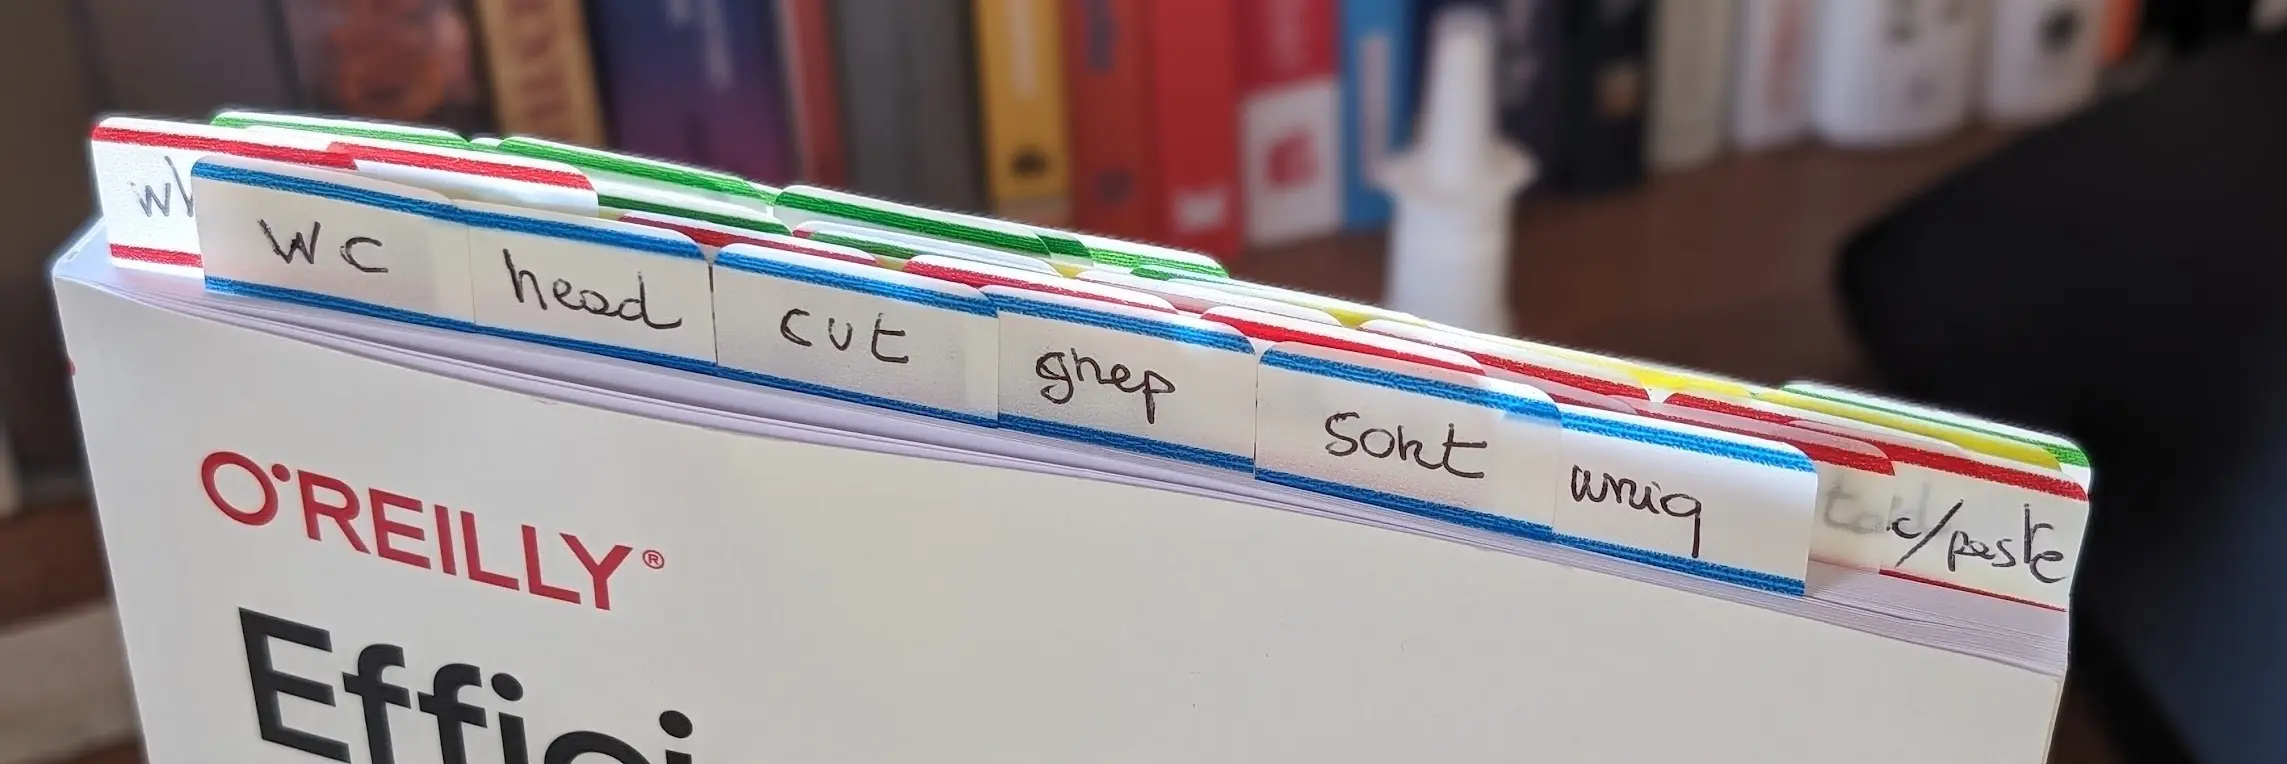 wc
head
cut
grep
sort
uniq
c/paste
O'REILLY®
Effici